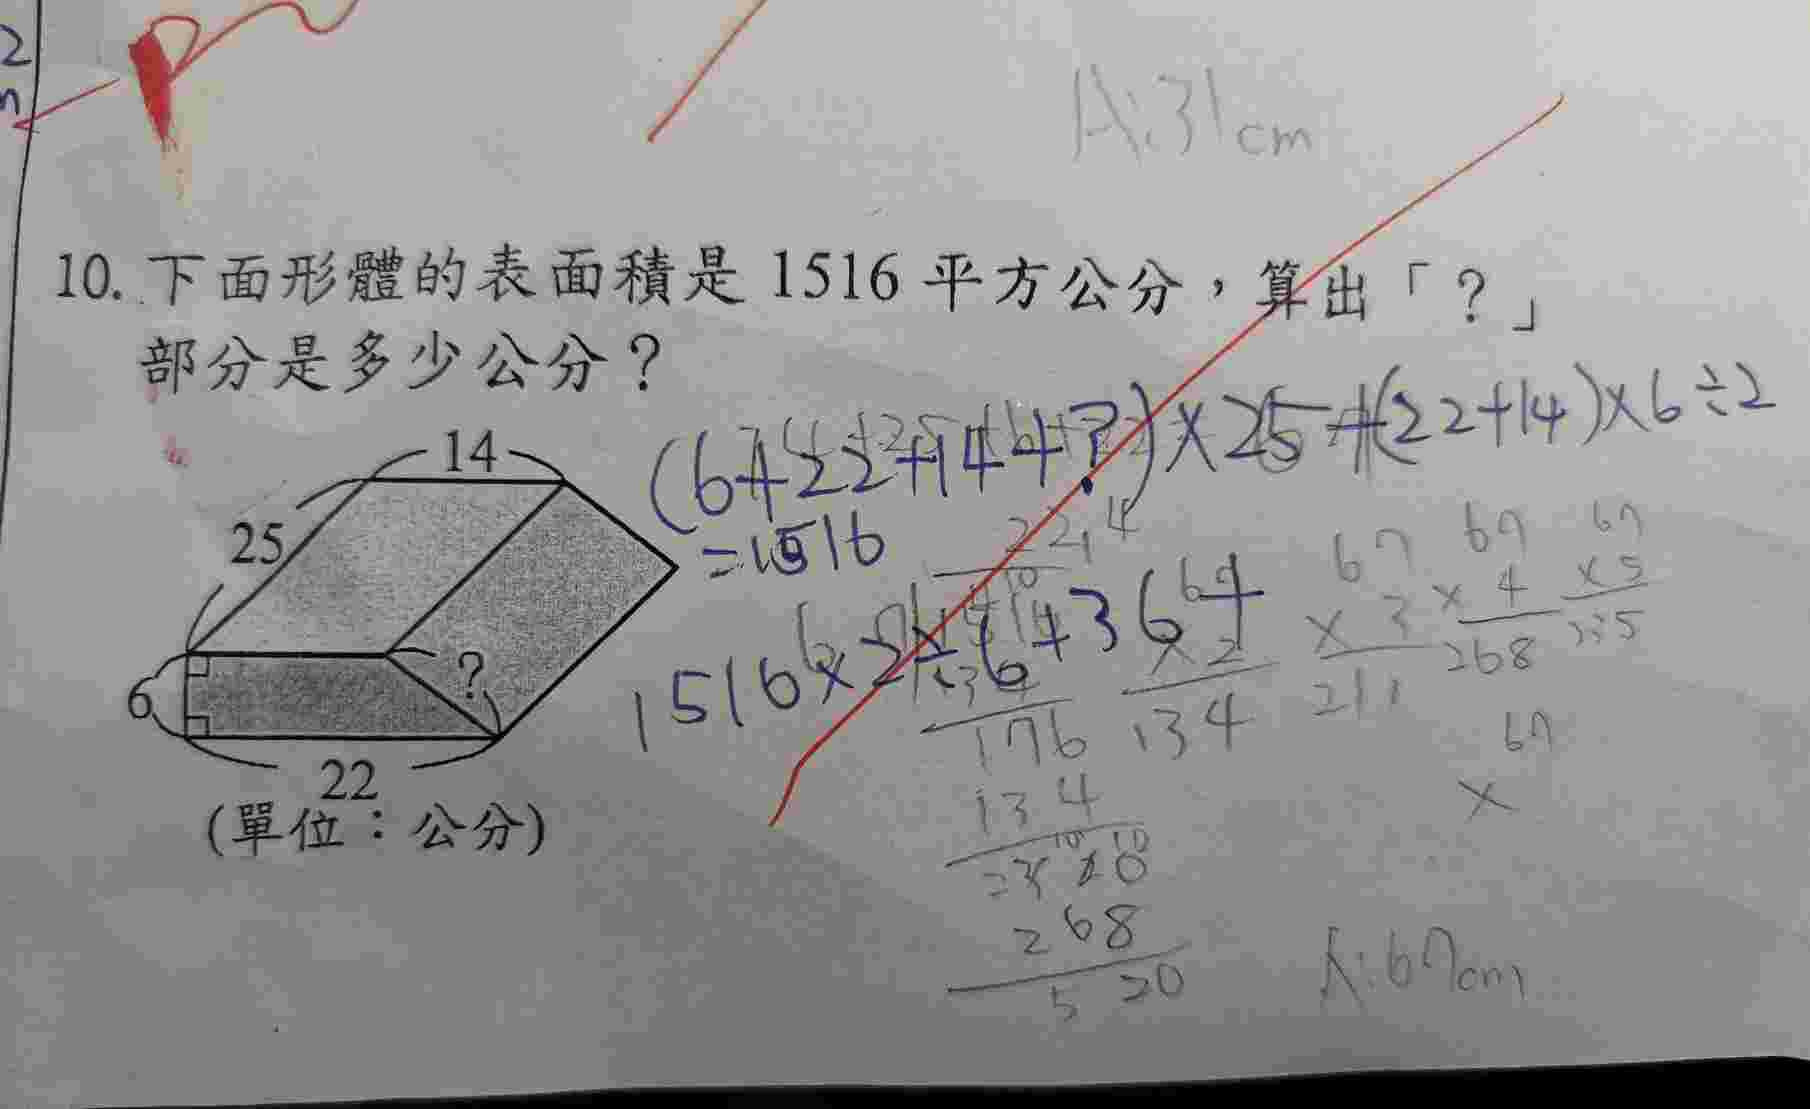 2
n
A:31cm
10. 下面形體的表面積是 1516 平方公分，算出「？」
部分是多少公分？
(6+22+14+?)×25+(22+14)×6÷2
=1516
14
25
6
?
22
(單位：公分)
1516×2÷6+36
22,4
67
×2
134
67
×3
211
67
×4
268
67
×5
335
67
×
176
134
268
520
A:67cm